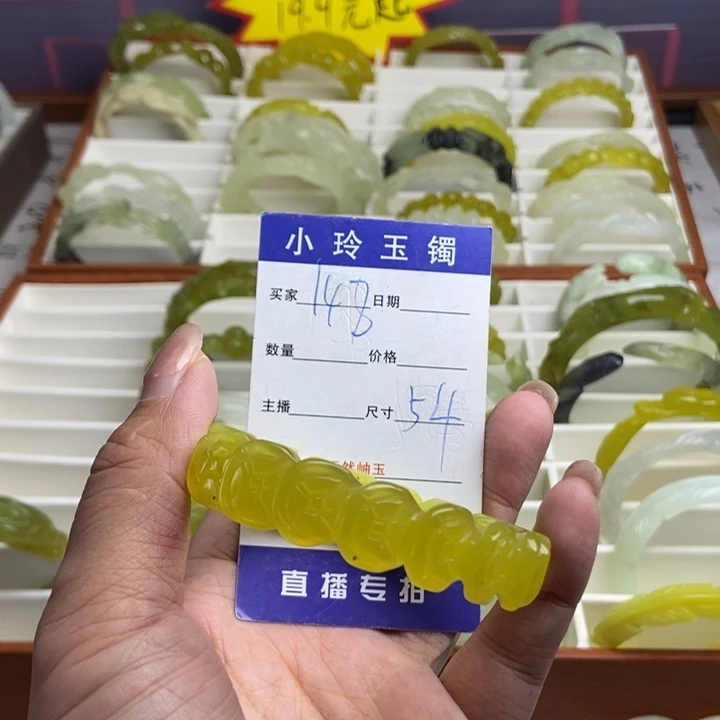 19.9元起
小玲玉镯
买家 148 日期
数量 价格
主播 尺寸 54
天然岫玉
直播专拍